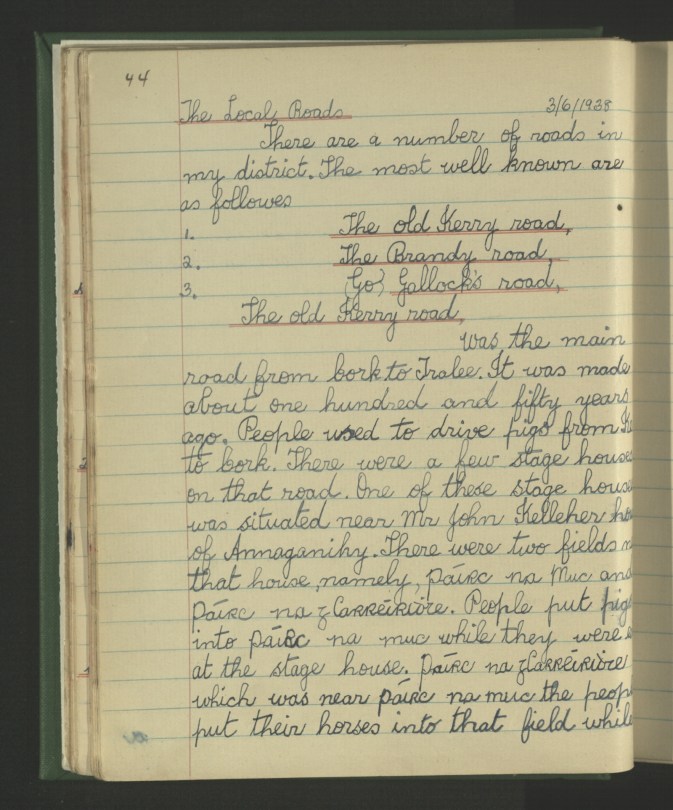 44
The Local Roads 3/6/1938
There are a number of roads in
my district. The most well known are
as followes
1. The old Kerry road,
2. The Brandy road,
3. (Go) Gallock's road,
The old Kerry road,
was the main
road from Cork to Tralee. It was made
about one hundred and fifty years
ago. People used to drive pigs from Ke
to Cork. There were a few stage houses
on that road. One of these stage house
was situated near Mr John Kelleher ho
of Annaganihy. There were two fields n
that house, namely, páirc na muc and
páirc na gCarréiridhe. People put pigs
into páirc na muc while they were
at the stage house. Páirc na gCarréiridhe
which was near páirc na muc the peop
put their horses into that field while